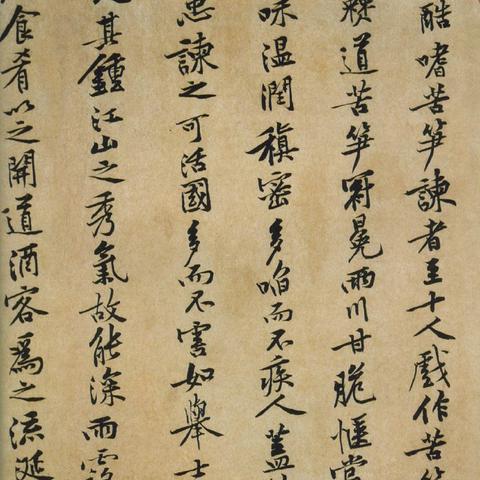 酷嗜苦笋諫者至十人戲作苦笋
僰道苦笋冠冕兩川甘脆愜當
味温潤稹密多啗而不疾人蓋
忠諫之可活國多而不害如舉士
是其鍾江山之秀氣故能深雨露
食肴以之開道酒客爲之流涎